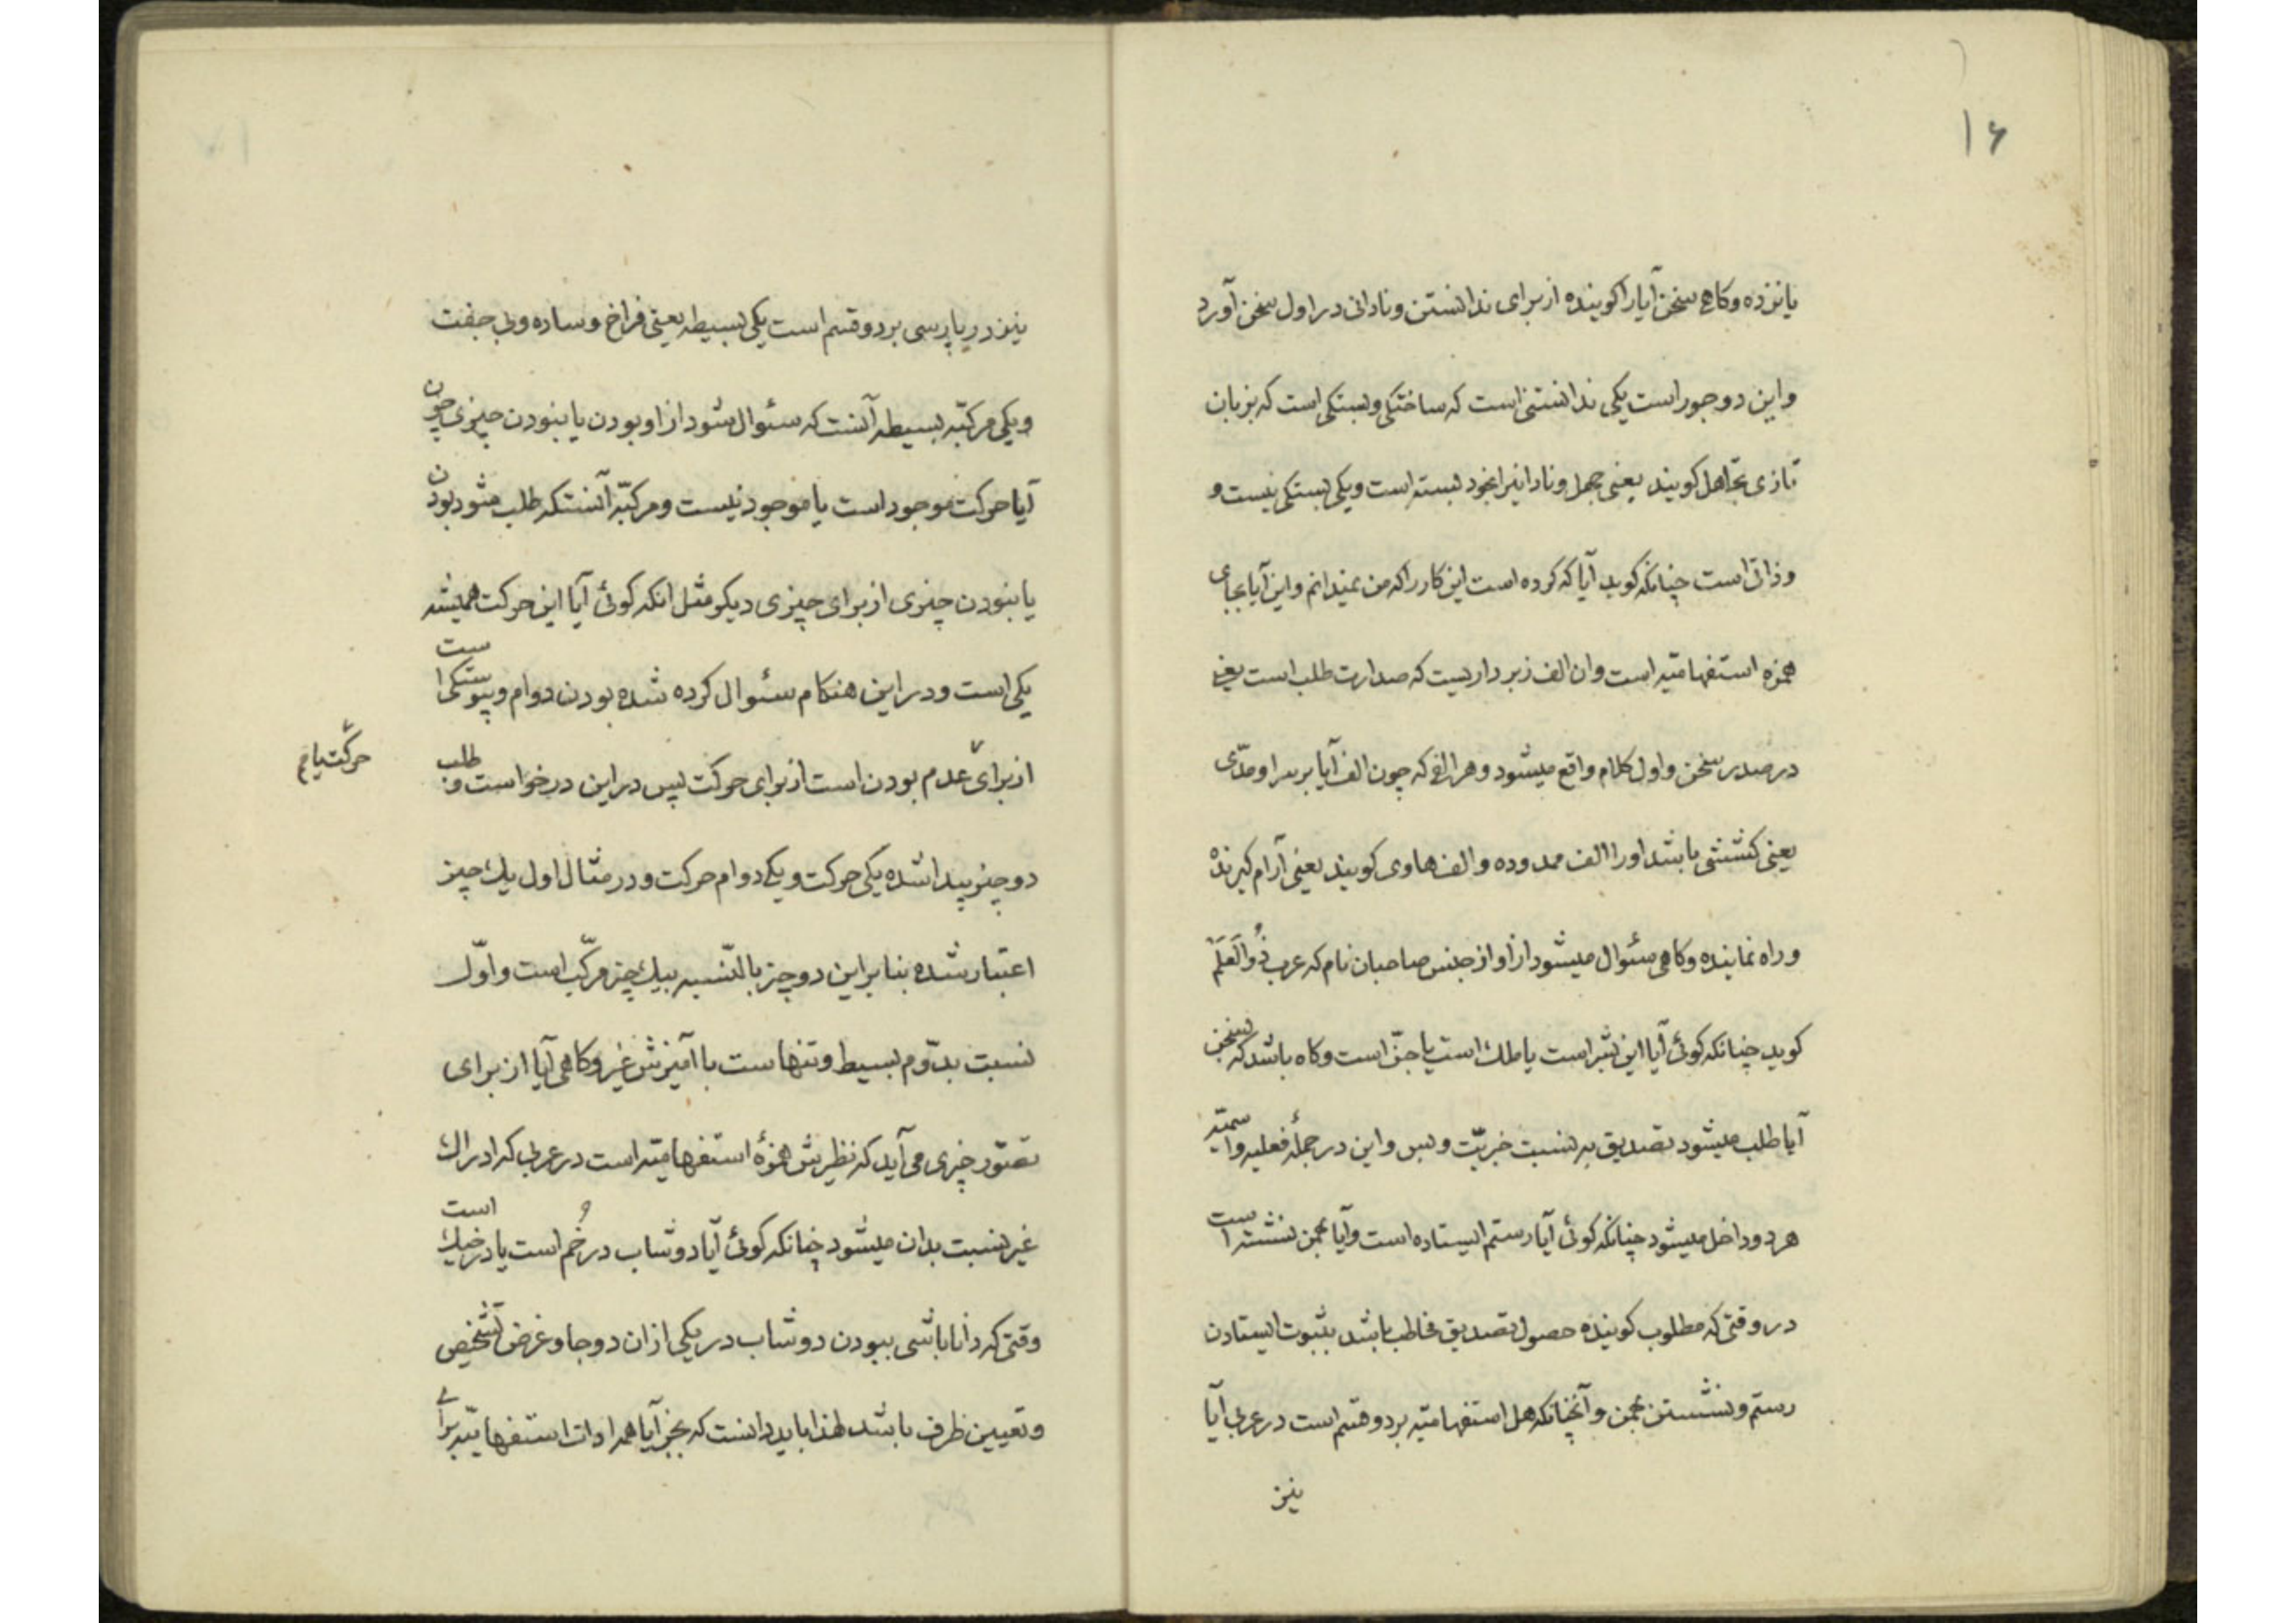 ۱۶
یا نزده و کاهی سخن آیا را کوینده از برای ندانستن و نادانی در اول سخن آورد
و این دو جور است یکی ندانستنی است که ساختکی و بستکی است که بزبان
تازی تجاهل کویند یعنی جهل و نادانیرا بخود بسته است و یکی بستکی نیست و
و ذاتی است چنانکه کوید آیا که کرده است این کار را که من نمیدانم و این آیا بجای
همزه استفهامیّه است و ان الف زبر داریست که صدارت طلب است یعنی
در صدر سخن و اول کلام واقع میشود و هر الفی که چون الف آیا بر سر او مدّی
یعنی کششی باشد او را الف ممدوده و الف هاوی کویند یعنی آرام کیرنده
و راه نماینده و کاهی سئوال میشود از او از جنس صاحبان نام که عرب ذُوالعَلَم
کوید چنانکه کوئی آیا این بشر است یا ملك است یا جنّ است و کاه باشد که بسخن
آیا طلب میشود تصدیق به نسبت خبریّت و بس و این در جملهٔ فعلیه و اسمیّه
هر دو داخل میشود چنانکه کوئی آیا رستم ایستاده است و آیا بهمن نشسته است
در وقتی که مطلوب کوینده حصول تصدیق مخاطب باشد بثبوت ایستادن
رستم و نشستن بهمن و آنچنانکه هل استفهامیّه بر دو قسم است در عربی آیا
نیز
نیز در پارسی بر دو قسم است یکی بسیطه یعنی فراخ و ساده و بی جفت
و یکی مرکّبه بسیطه آنست که سئوال شود از او بودن یا نبودن چیزی چون
آیا حرکت موجود است یا موجود نیست و مرکّبه آنستکه طلب میشود بودن
یا نبودن چیزی از برای چیزی دیکر مثل انکه کوئی آیا این حرکت همیشه
یکی است و در این هنکام سئوال کرده شده بودن دوام و پیوستکی است
از برای عدم بودن است از برای حرکت پس در این درخواست و طلب
حرکت یا
دو چیز پیدا شده یکی حرکت و یکی دوام حرکت و در مثال اول یك چیز
اعتبار شده بنا بر این دو چیز بالنّسبه بیك چیز مرکّب است و اوّل
نسبت بدوّم بسیط و تنهاست با آمیزش غیر و کاهی آیا از برای
تصوّر چیزی می آید که نظیرش همزهٔ استفهامیّه است در عربی که ادراك
غیر نسبت بدان میشود چنانکه کوئی آیا دوشاب در خُم است یا در خیك است
وقتی که دانا باشی ببودن دوشاب در یکی از ان دو جا و غرض تشخیص
و تعیین ظرف باشد لهذا باید دانست که بجز آیا همه ادات استفهامیّه برای